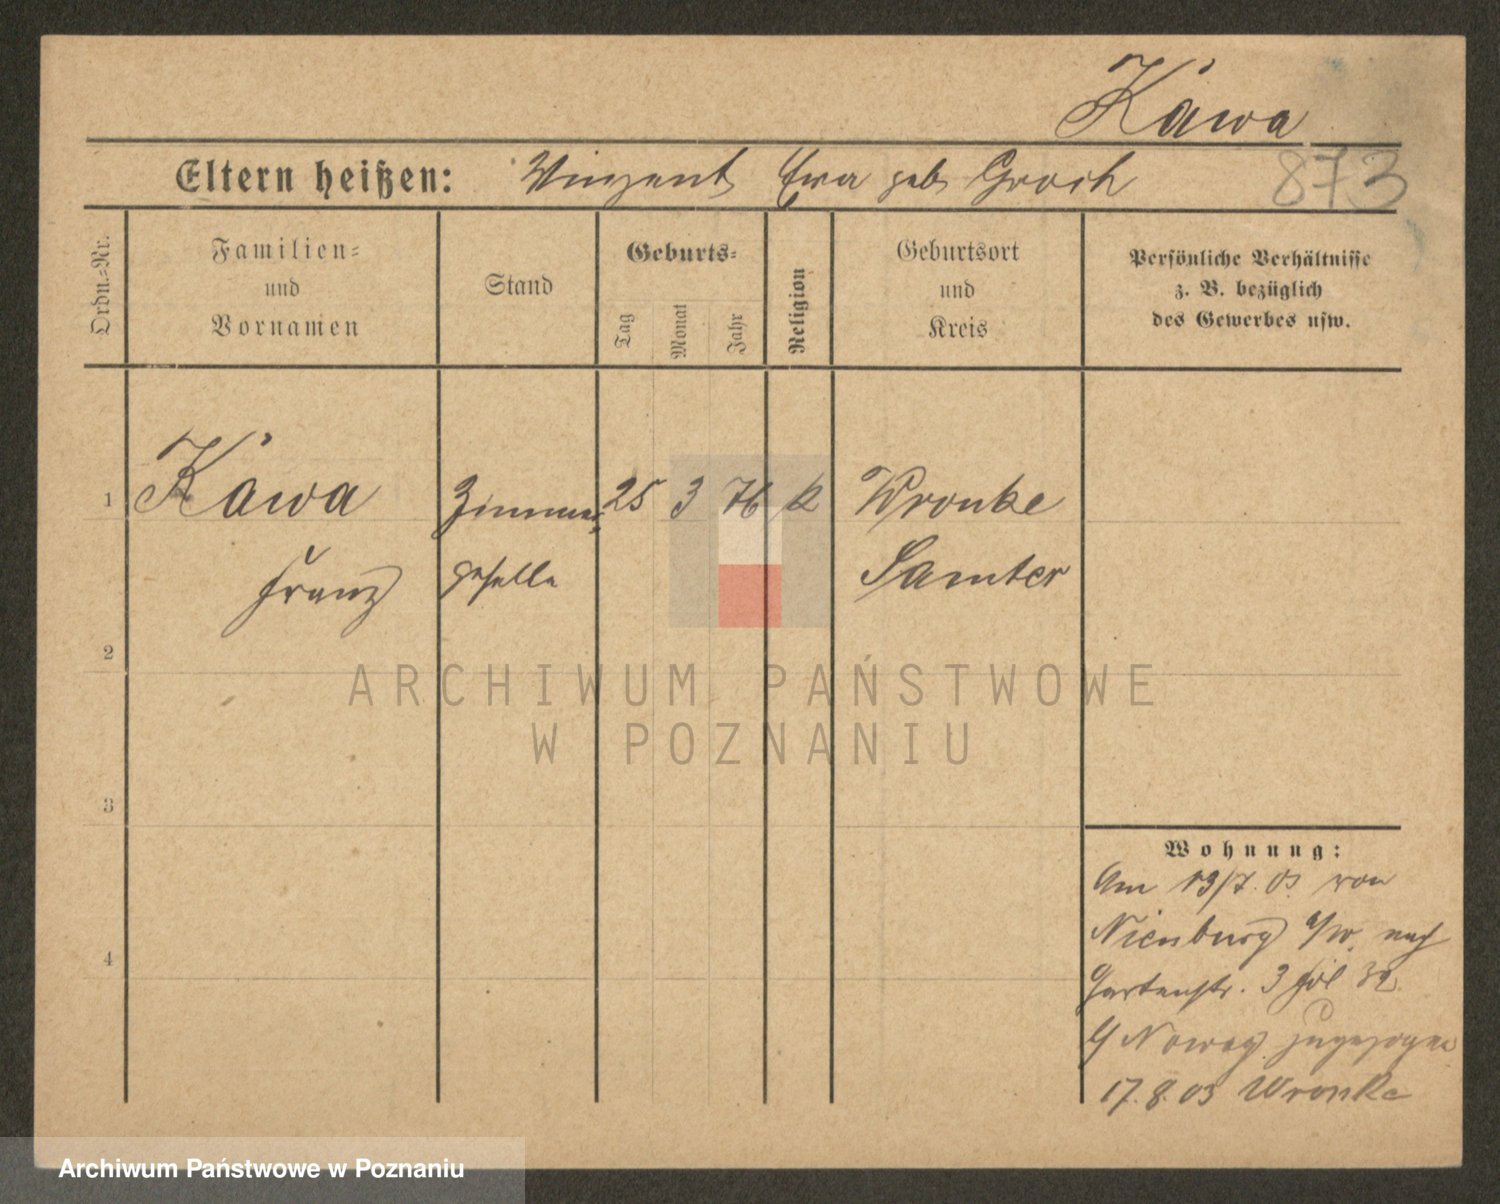 Kawa
873
Eltern heißen: Vinzent Ewa geb Groch
Ordn.-Nr.
Familien-
und
Vornamen
Stand
Geburts-
Tag
Monat
Jahr
Religion
Geburtsort
und
Kreis
Persönliche Verhältnisse
z. B. bezüglich
des Gewerbes usw.
1 Kawa Zimmer- 25 3 76 k Wronke
Franz geselle Samter
2
3
4
Wohnung:
Am 13/7. 03 von
Nienburg a/W. nach
Gartenstr. 3 32
b/ Nowag zugezogen
17.8.03 Wronke
ARCHIWUM PAŃSTWOWE
W POZNANIU
Archiwum Państwowe w Poznaniu